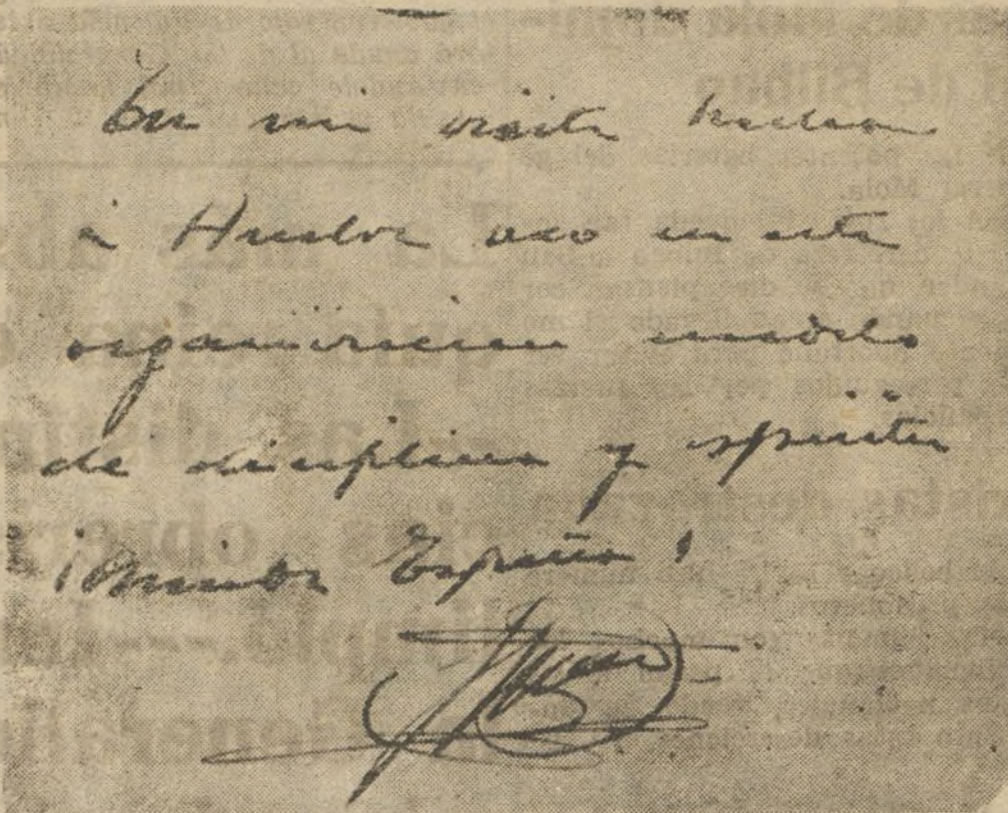 En mi visita hecha
a Huelva veo en esta
organizacion modelo
de disciplina y espiritu
¡Arriba España!